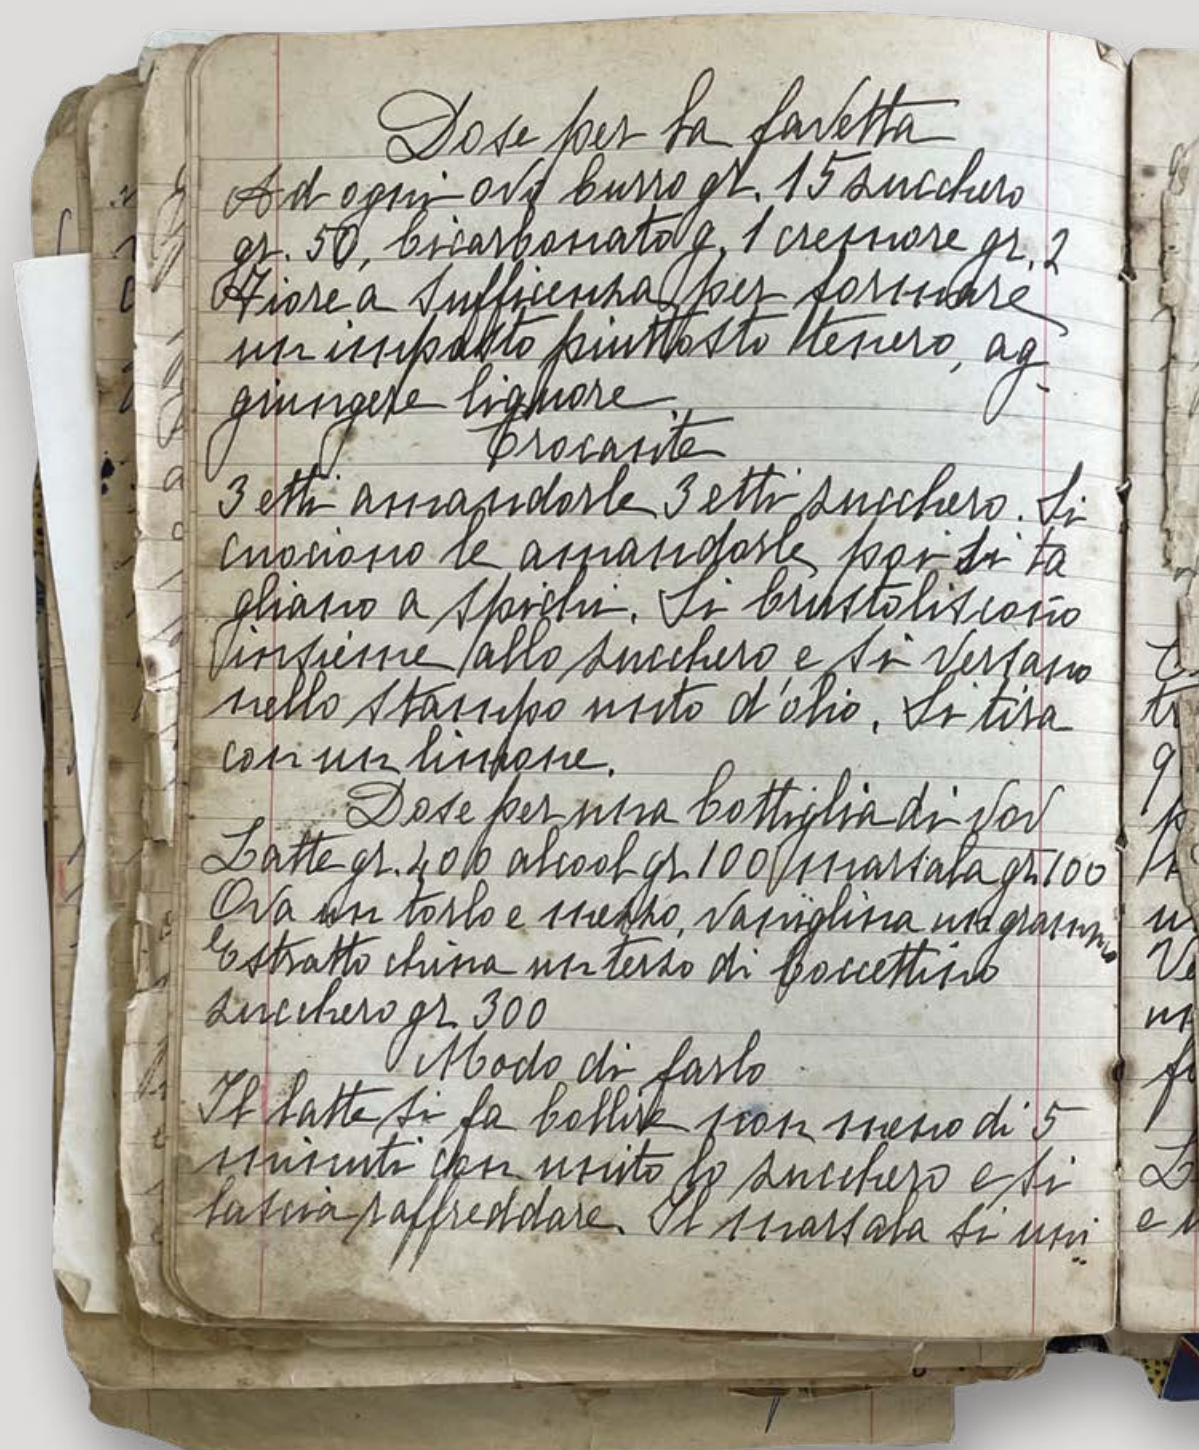 Dose per la favetta
Ad ogni ovo burro gr. 15 zucchero
gr. 50, bicarbonato g. 1 cremore gr. 2
Fiore a sufficenza per formare
un impasto piuttosto tenero, ag-
giungere liquore
Crocante
3 etti amandorle 3 etti zucchero. Si
cuociono le amandorle poi si ta
gliano a spichi. Si brustoliscono
insieme allo zucchero e si versano
nello stampo unto d'olio. Si tira
con un limone.
Dose per una bottiglia di vov
Latte gr. 400 alcool gr. 100 marsala gr. 100
Ova un torlo e mezzo, vaniglina un grammo
Estratto china un terzo di boccettino
zucchero gr. 300
Modo di farlo
Il latte si fa bollire non meno di 5
minuti con unito lo zucchero e si
lascia raffreddare. Il marsala si uni